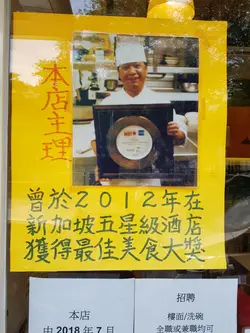 本店主理
曾於2012年在
新加坡五星級酒店
獲得最佳美食大獎
本店
由 2018 年 7 月
招聘
樓面/洗碗
全職或兼職均可